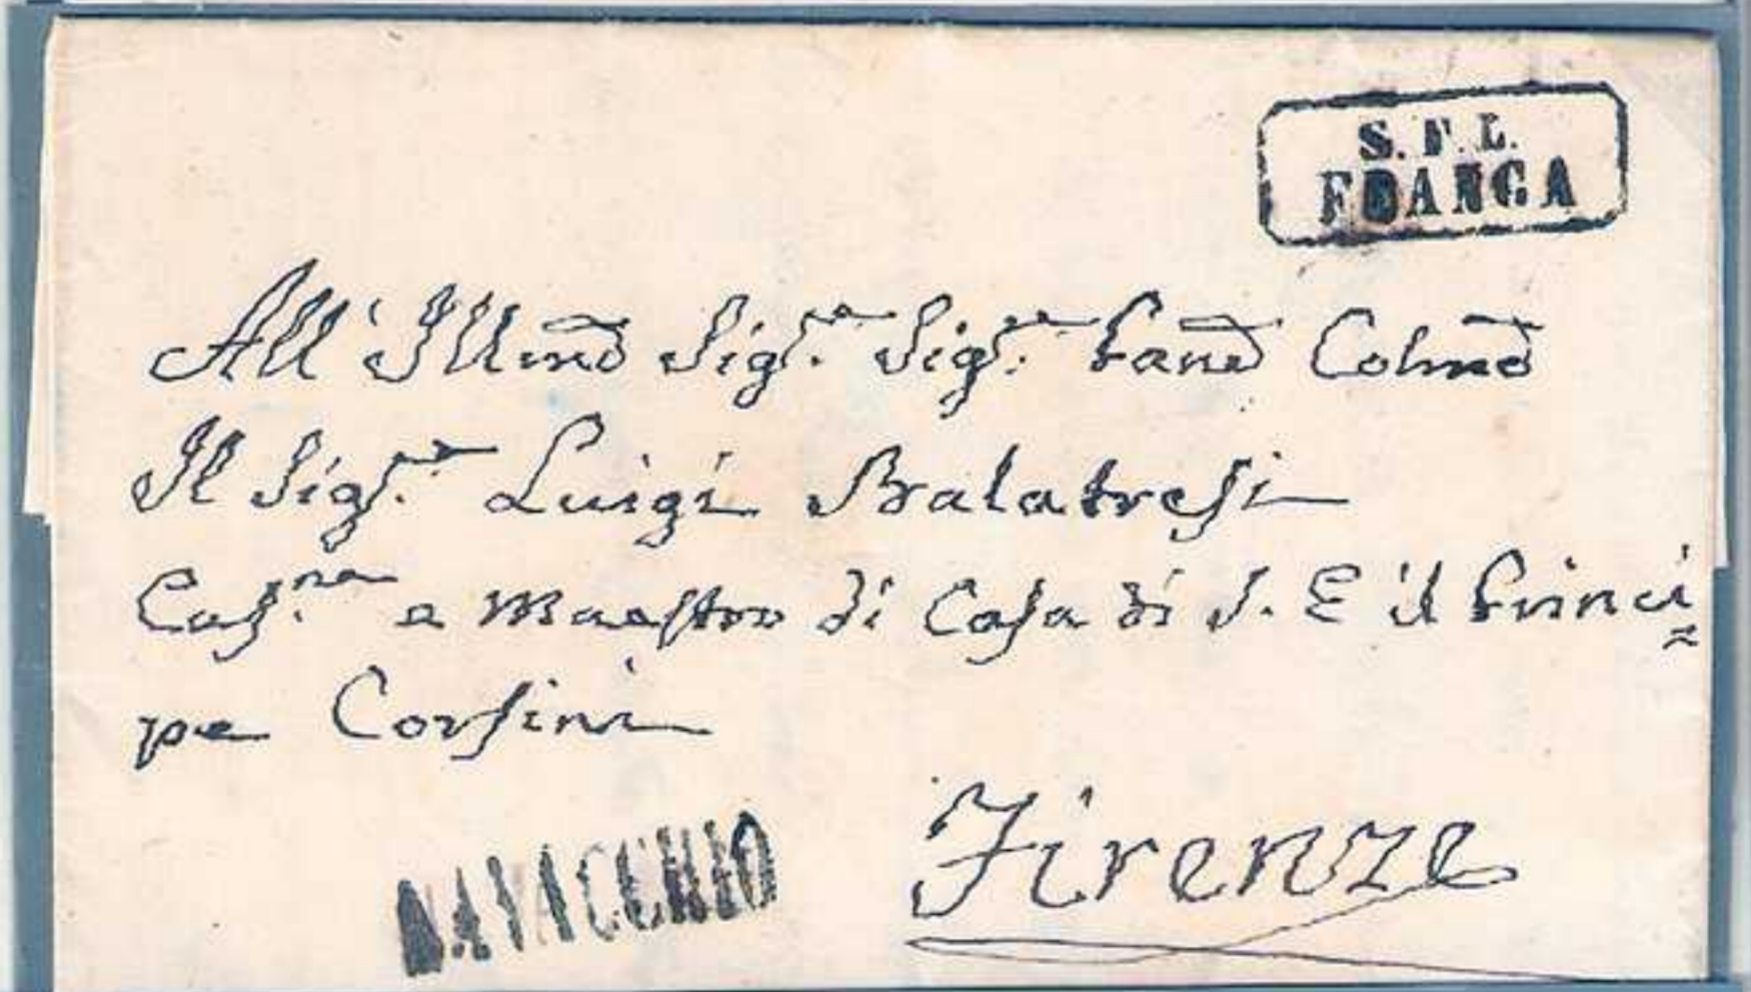 S. F. L.
FRANCA
All' Illmo Sigre Sigre Pane Colmo
Il Sigre Luigi Balatresi
Casre e Maestro di Casa di S. E il Princi=
pe Corsini
Firenze
NAVACCHIO